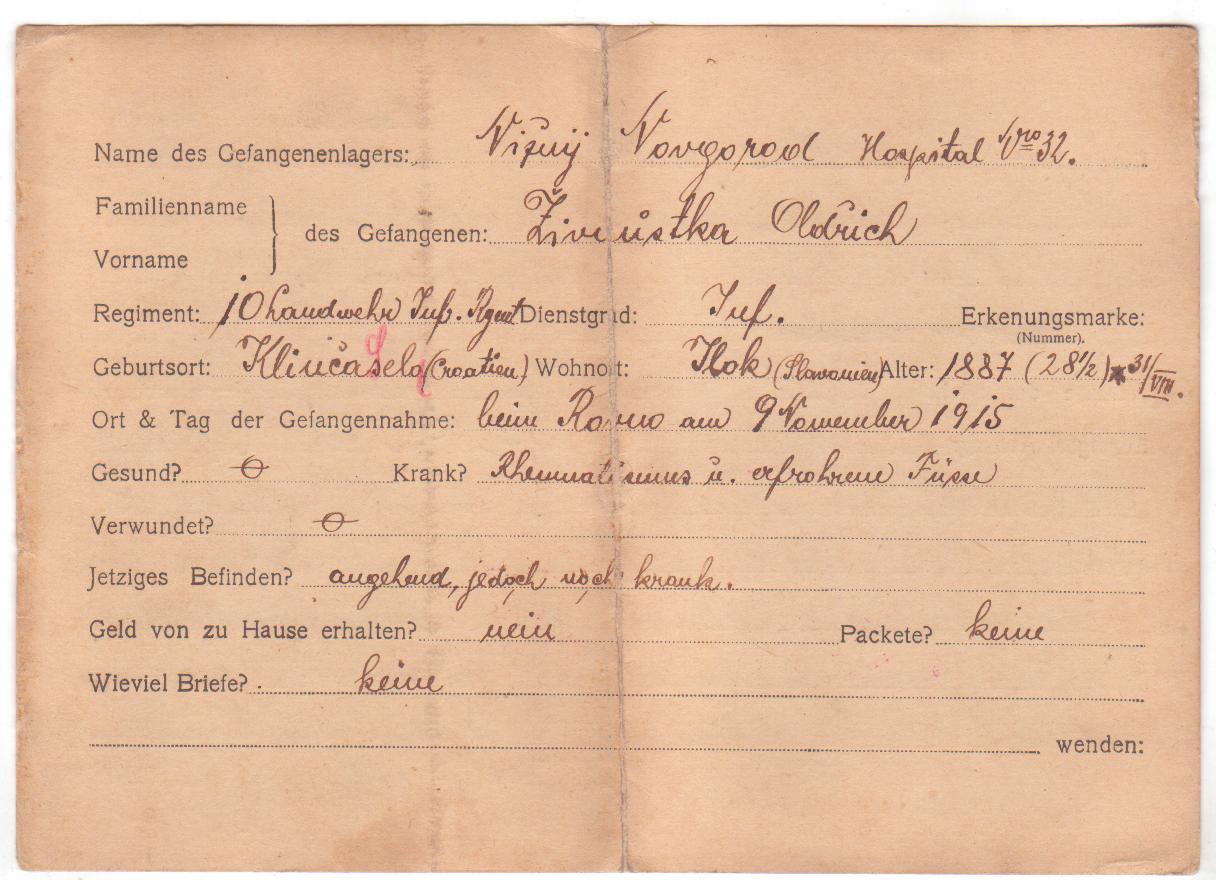 Name des Gefangenenlagers: Nižnij Novgorod Hospital Nro 32.
Familienname
des Gefangenen: Živnůstka Oldřich
Vorname
Regiment: 10 Landwehr Inf. Rgmt Dienstgrad: Inf. Erkenungsmarke:
(Nummer).
Geburtsort: Klinčaselo (Croatien) Wohnort: Ilok (Slavonien) Alter: 1887 (28 1/2) * 31/VIII.
Ort & Tag der Gefangennahme: beim Rovno am 9 November 1915
Gesund? Krank? Rheumatismus u. erfrohrene Füsse
Verwundet?
Jetziges Befinden? angehend, jedoch noch krank.
Geld von zu Hause erhalten? nein Packete? keine
Wieviel Briefe? keine
wenden: